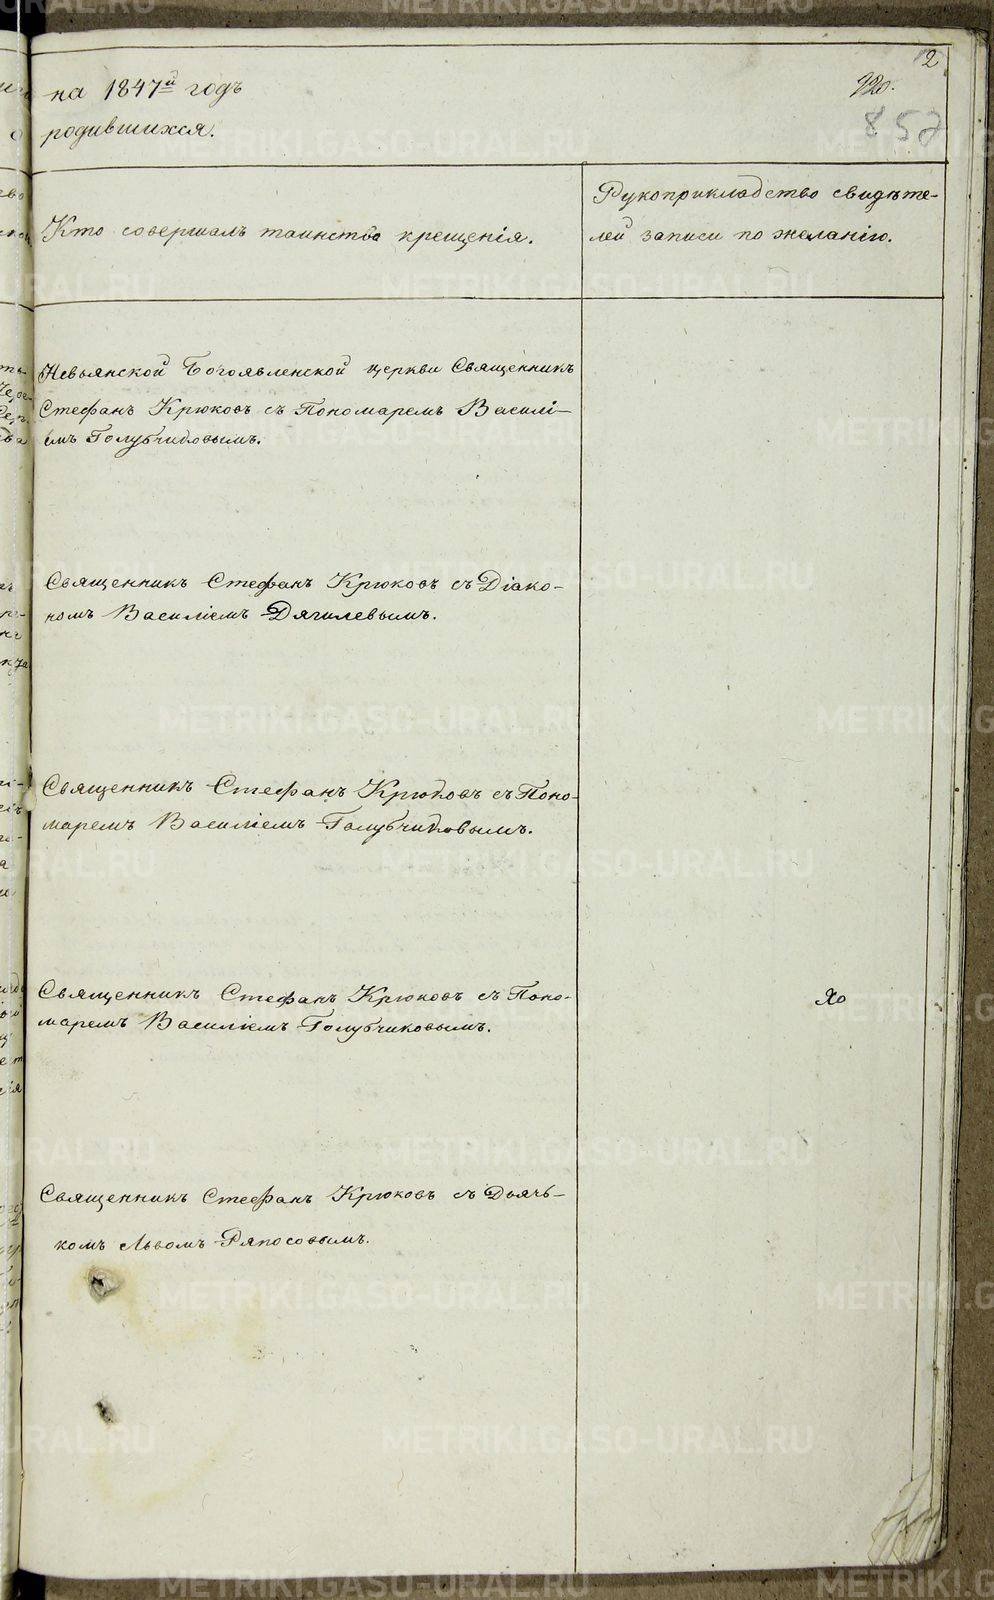 2
на 1847й годъ
родившихся.
857
Кто совершалъ таинство крещенія.
Рукоприкладство свидѣте-
лей записи по желанію.
Невьянской Богоявленской церкви Священникъ
Стефанъ Крюковъ съ Пономаремъ Василі-
емъ Голубчиковымъ.
Священникъ Стефанъ Крюковъ съ Діако-
номъ Василіемъ Дягилевымъ.
Священникъ Стефанъ Крюковъ съ Поно-
маремъ Василіемъ Голубчиковымъ.
Священникъ Стефанъ Крюковъ съ Поно-
маремъ Василіемъ Голубчиковымъ.
Священникъ Стефанъ Крюковъ съ Дьячь-
комъ Львомъ Ряпосовымъ.
METRIKI.GASO-URAL.RU